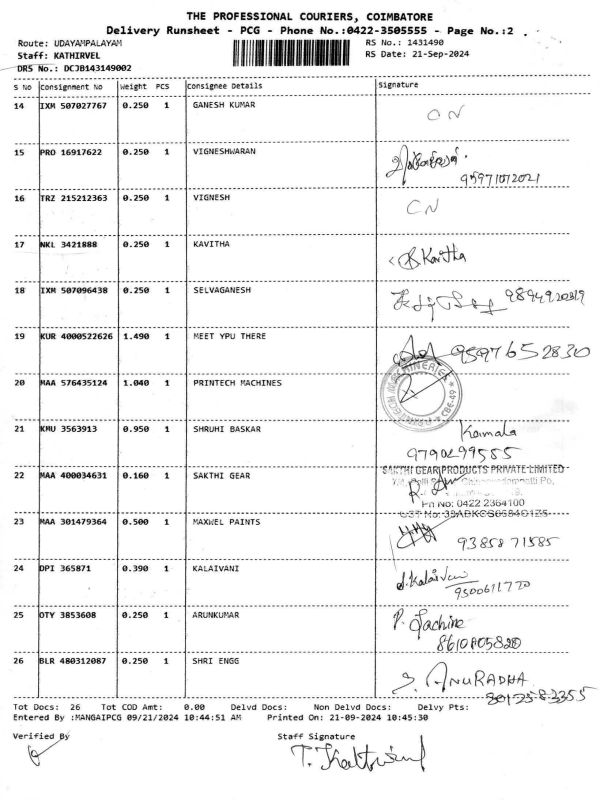 THE PROFESSIONAL COURIERS, COIMBATORE
Delivery Runsheet - PCG - Phone No.:0422-3505555 - Page No.:2
Route: UDAYAMPALAYAM
RS No.: 1431490
Staff: KATHIRVEL
RS Date: 21-Sep-2024
DRS No.: DCJB143149002
S No Consignment No Weight PCS Consignee Details Signature
14 IXM 507027767 0.250 1 GANESH KUMAR CN
15 PRO 16917622 0.250 1 VIGNESHWARAN
16 TRZ 215212363 0.250 1 VIGNESH CN
17 NKL 3421888 0.250 1 KAVITHA Kavitha
18 IXM 507096438 0.250 1 SELVAGANESH
19 KUR 4000522626 1.490 1 MEET YPU THERE 9597652830
20 MAA 576435124 1.040 1 PRINTECH MACHINES CBE-49
21 KMU 3563913 0.950 1 SHRUHI BASKAR Kamala
22 MAA 400034631 0.160 1 SAKTHI GEAR SAKTHI GEAR PRODUCTS PRIVATE LIMITED
Ph No: 0422 2364100
23 MAA 301479364 0.500 1 MAXWEL PAINTS 9385871585
24 DPI 365871 0.390 1 KALAIVANI
25 OTY 3853608 0.250 1 ARUNKUMAR
26 BLR 480312087 0.250 1 SHRI ENGG ANURADHA
8012583355
Tot Docs: 26 Tot COD Amt: 0.00 Delvd Docs: Non Delvd Docs: Delvy Pts:
Entered By :MANGAIPCG 09/21/2024 10:44:51 AM Printed On: 21-09-2024 10:45:30
Verified By Staff Signature